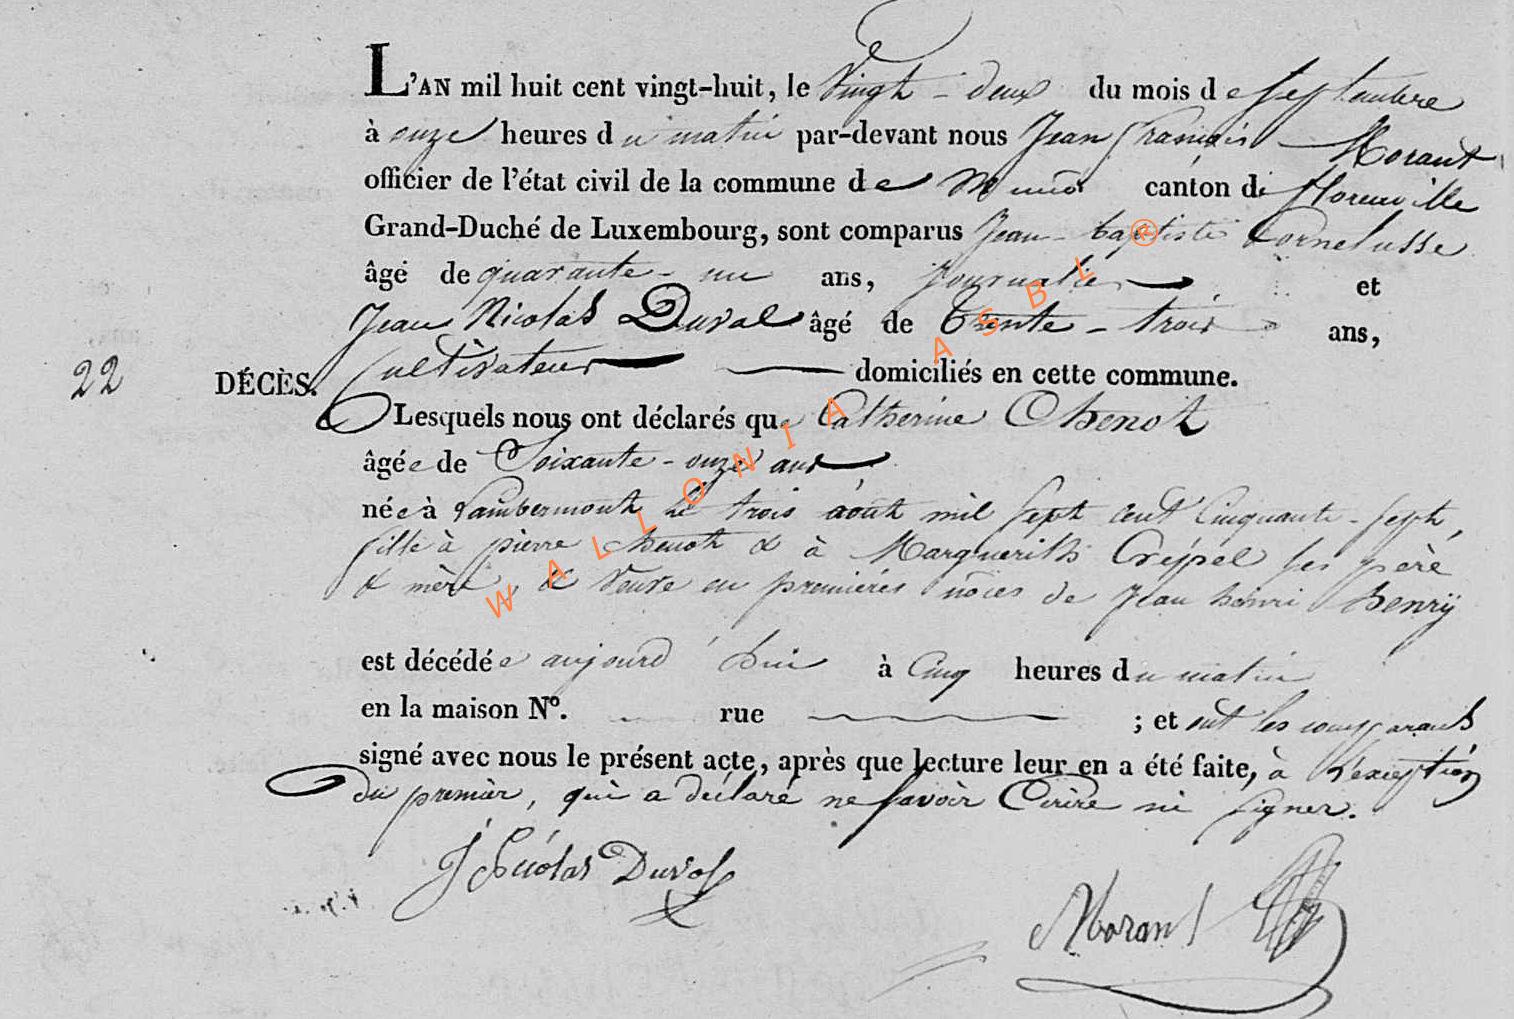 L'AN mil huit cent vingt-huit, le Vingt-deux du mois de Septembre
à onze heures du matin par-devant nous Jean François Morant
officier de l'état civil de la commune de Muno canton de florenville
Grand-Duché de Luxembourg, sont comparus Jean-baptiste Cornelusse
âgé de quarante-un ans, Journalier et
Jean Nicolas Duval âgé de trente-trois ans,
22 DÉCÈS. Cultivateur domiciliés en cette commune.
Lesquels nous ont déclarés que Catherine Chenot
âgée de Soixante-onze ans
née à Lambermont le trois août mil sept cent Cinquante-sept,
fille à pierre chenot & à Marguerite Crépel ses père
& mère, & Veuve en premières nôces de Jean henri henrÿ
est décédée aujourd'hui à Cinq heures du matin
en la maison N°. rue ; et ont les comparants
signé avec nous le présent acte, après que lecture leur en a été faite, à l'exception
du premier, qui a déclaré ne savoir Ecrire ni signer.
J Nicolas Duval
Morant
WALLONIA ASBL ®